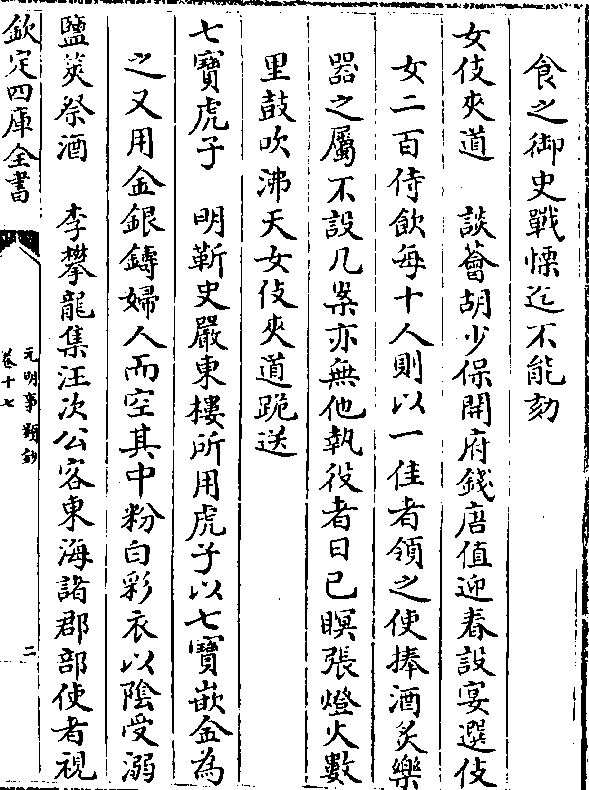 食之御史戰慄迄不能劾
女伎夾道　談薈胡少保開府錢唐值迎春設宴選伎
女二百侍飲每十人則以一佳者領之使捧酒炙樂
器之屬不設几案亦無他執役者日已暝張燈火數
里鼓吹沸天女伎夾道跪送
七寶虎子　明蘄史嚴東樓所用虎子以七寶嵌金為
之又用金銀鑄婦人而空其中粉白彩衣以陰受溺
鹽筴祭酒　李攀龍集汪次公客東海諸郡部使者視
欽定四庫全書
元明事類鈔
卷十七
二